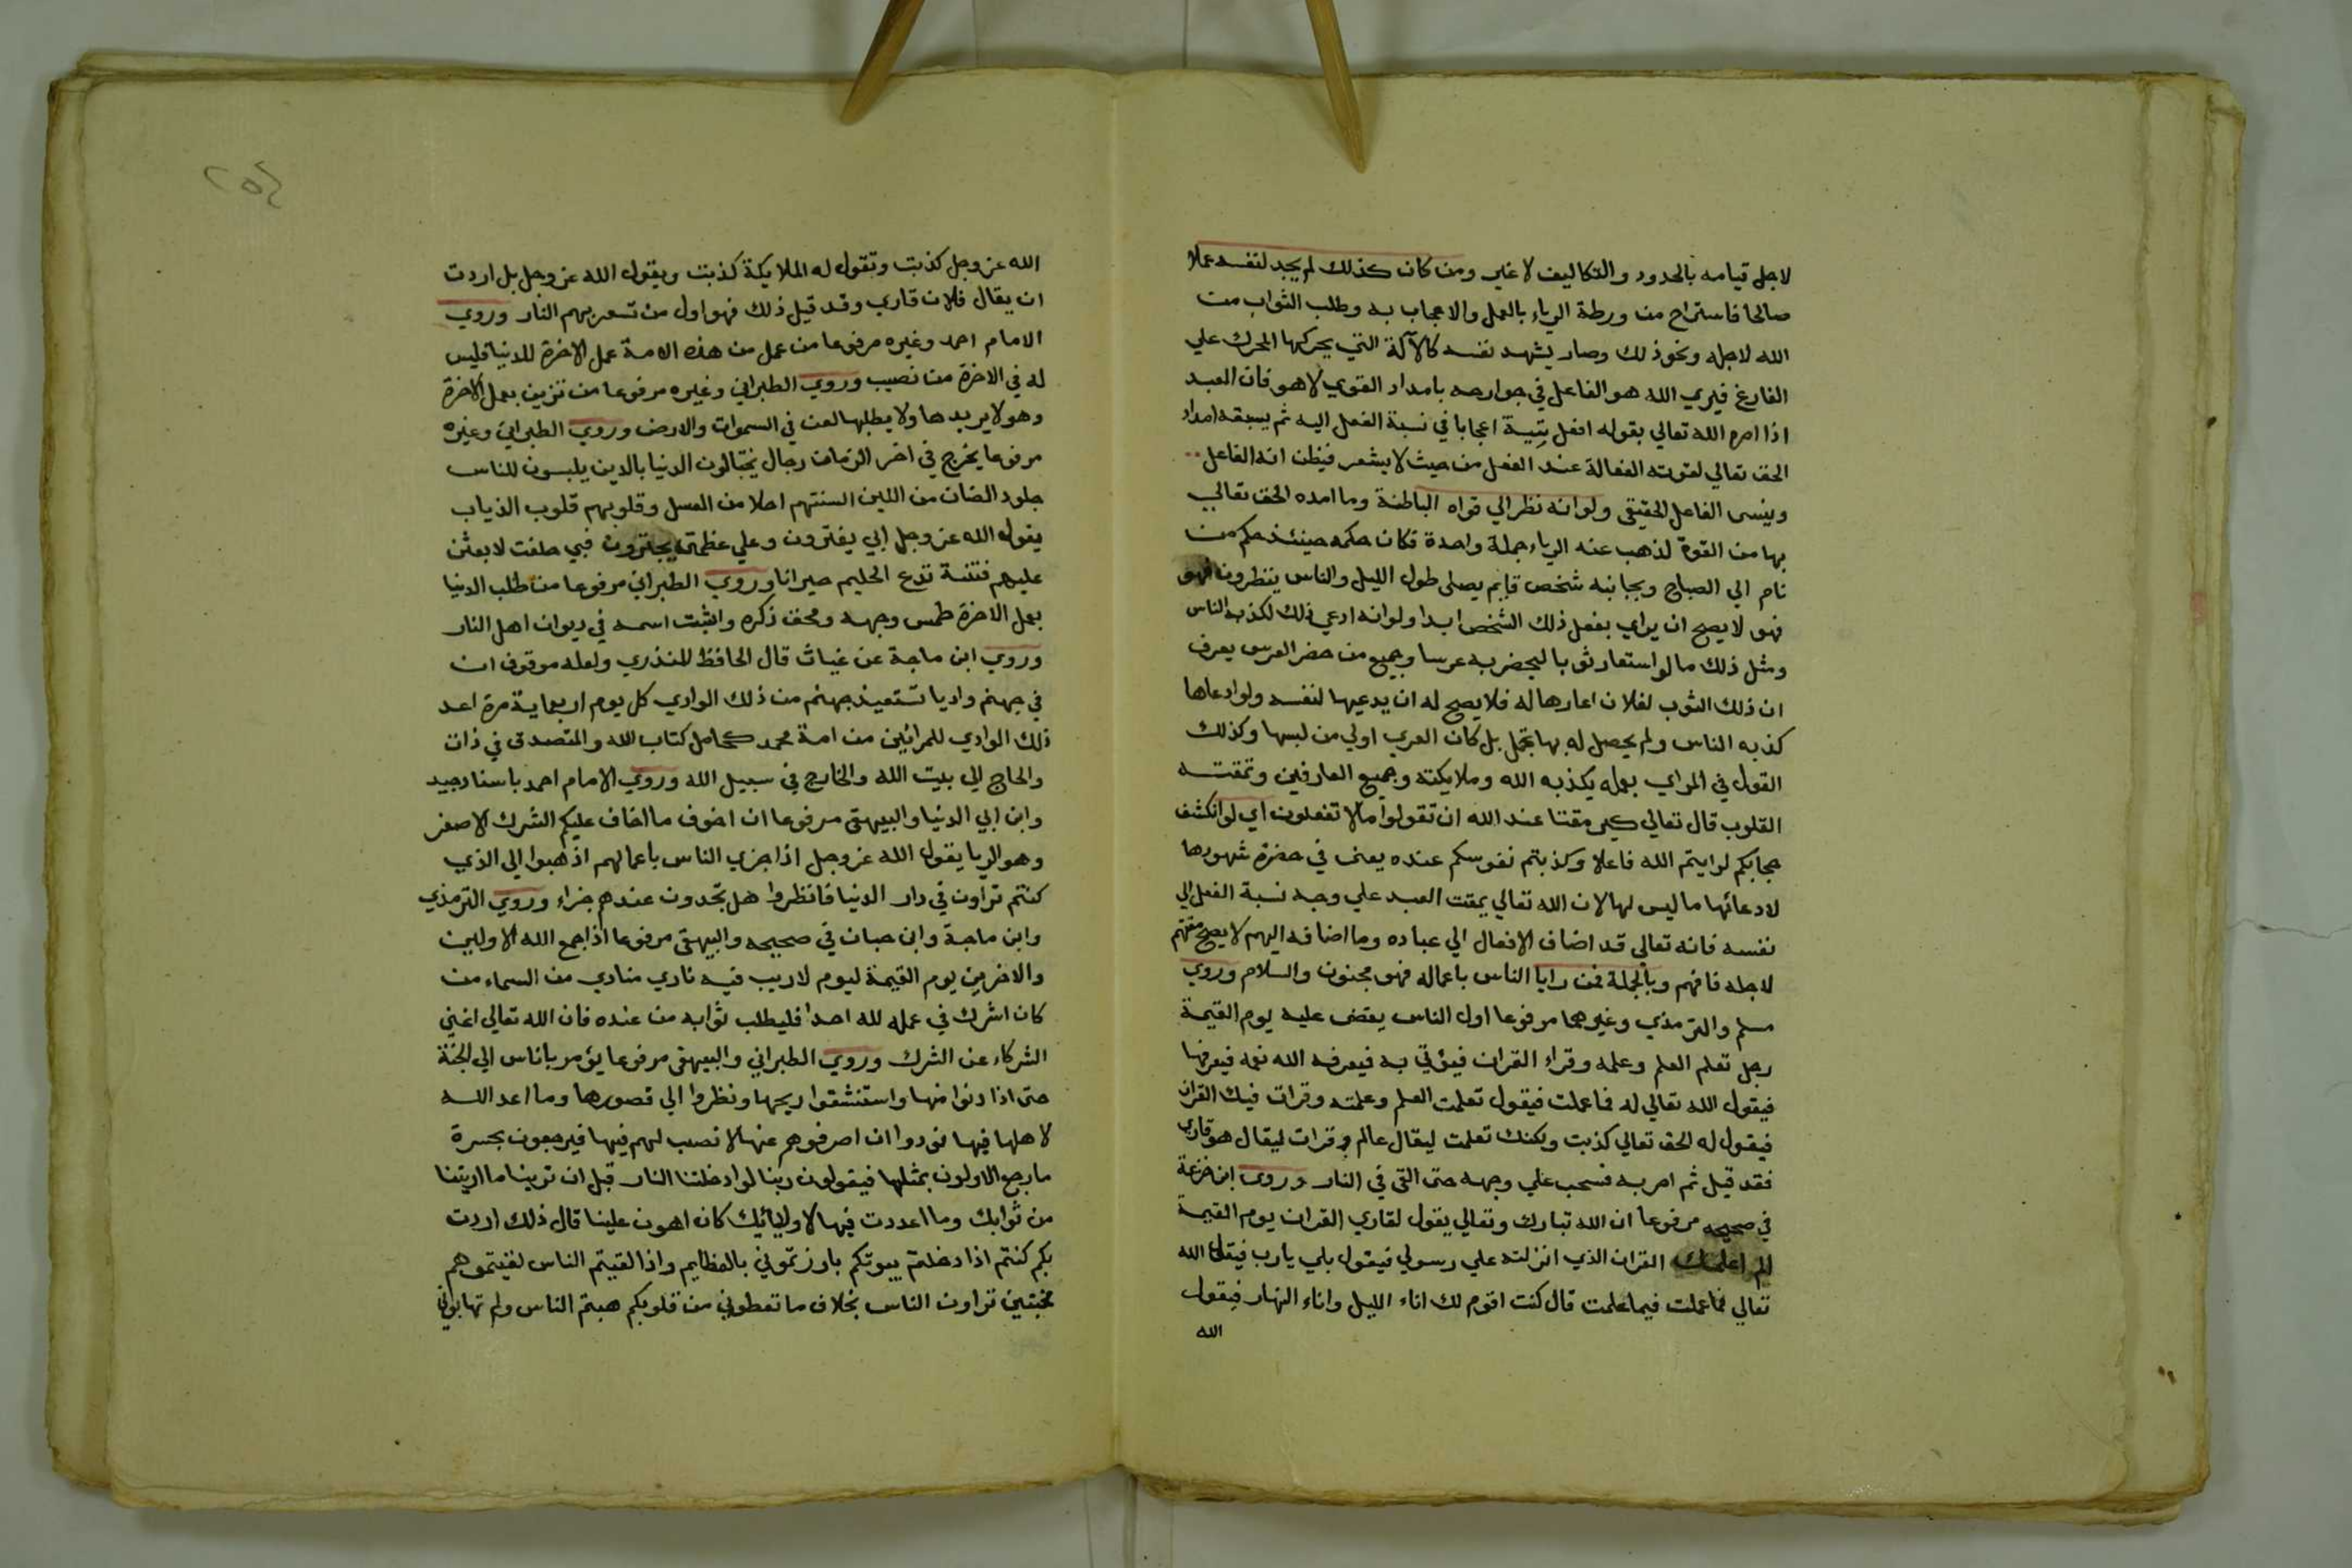 لاجل قيامه بالحدود والتكاليف لا غير ومن كان كذلك لم يجد لنفسه عملا
صالحا فاستراح من ورطة الرياء بالعمل والاعجاب به وطلب الثواب من
الله لاجله ونحو ذلك وصار يشهد نفسه كالآلة التي يحركها المحرك علي
الفارغ فيري الله هو الفاعل في جوارحه بامداد القوي لا هو فان العبد
اذا امره الله تعالي بقوله افعل بتية اعجابا في نسبة الفعل اليه ثم يسبقه امداد
الحق تعالي لقوته الفعالة عند الفعل من حيث لا يشعر فيظن انه الفاعل
وينسى الفاعل الحقيقي ولو انه نظر الي قواه الباطنة وما امده الحق تعالي
بها من القوة لذهب عنه الرياء جملة واحدة فكان حكمه حينئذ حكم من
نام الي الصباح وبجانبه شخص قايم يصلي طول الليل والناس ينظرون فهو
فهو لا يصح ان يراي بفعل ذلك الشخص ابدا ولو انه ادعي ذلك لكذبه الناس
ومثل ذلك ما لو استعار ثوبا ليحضر به عرسا وجميع من حضر العرس يعرف
ان ذلك الثوب لفلان اعارها له فلا يصح له ان يدعيها لنفسه ولو ادعاها
كذبه الناس ولم يحصل له بها تجمل بل كان العري اولي من لبسها وكذلك
القول في المراي بعمله يكذبه الله وملايكته وجميع العارفين وتمقته
القلوب قال تعالي كبر مقتا عند الله ان تقولوا ما لا تفعلون اي لو انكشف
حجابكم لرايتم الله فاعلا وكذبتم نفوسكم عنده يعني في حضرة شهودها
لادعائها ما ليس لها لان الله تعالي يمقت العبد علي وجه نسبة الفعل الي
نفسه فانه تعالي قد اضاف الافعال الي عباده وما اضافه اليهم لا يصح مقتهم
لاجله فافهم وبالجملة فمن رايا الناس باعماله فهو مجنون والسلام وروي
مسلم والترمذي وغيرهما مرفوعا اول الناس يقضى عليه يوم القيمة
رجل تعلم العلم وعلمه وقراء القران فيؤتي به فيعرفه الله نعمه فيعرفها
فيقول الله تعالي له فما عملت فيقول تعلمت العلم وعلمته وقرات فيك القران
فيقول له الحق تعالي كذبت ولكنك تعلمت ليقال عالم وقرات ليقال هو قاري
فقد قيل ثم امر به فسحب علي وجهه حتى القي في النار وروي ابن خزيمة
في صحيحه مرفوعا ان الله تبارك وتعالي يقول لقاري القران يوم القيمة
الم اعلمك القران الذي انزلته علي رسولي فيقول بلي يا رب فيقول الله
تعالي فما عملت فيما علمت قال كنت اقوم لك اناء الليل واناء النهار فيقول
الله
الله عز وجل كذبت وتقول له الملايكة كذبت ويقول الله عز وجل بل اردت
ان يقال فلان قاري وقد قيل ذلك فهو اول من تسعر بهم النار وروي
الامام احمد وغيره مرفوعا من عمل من هذه الامة عمل الاخرة للدنيا فليس
له في الاخرة من نصيب وروي الطبراني وغيره مرفوعا من تزين بعمل الاخرة
وهو لا يريدها ولا يطلبها لعن في السموات والارض وروي الطبراني وغيره
مرفوعا يخرج في اخر الزمان رجال يختالون الدنيا بالدين يلبسون للناس
جلود الضان من اللين السنتهم احلا من العسل وقلوبهم قلوب الذياب
يقول الله عز وجل ابي يغترون وعلي عظمتي يجترون فبي حلفت لابعثن
عليهم فتنة تدع الحليم حيرانا وروي الطبراني مرفوعا من طلب الدنيا
بعمل الاخرة طمس وجهه ومحق ذكره واثبت اسمه في ديوان اهل النار
وروي ابن ماجة عن غياث قال الحافظ المنذري ولعله موقوف ان
في جهنم واديا تستعيذ جهنم من ذلك الوادي كل يوم اربعماية مرة اعد
ذلك الوادي للمرائين من امة محمد كحامل كتاب الله والمتصدق في ذات
والحاج الي بيت الله والخارج في سبيل الله وروي الامام احمد باسناد جيد
وابن ابي الدنيا والبيهقي مرفوعا ان اخوف ما اخاف عليكم الشرك الاصغر
وهو الريا يقول الله عز وجل اذا جزي الناس باعمالهم اذهبوا الي الذي
كنتم تراون في دار الدنيا فانظروا هل تجدون عندهم جزاء وروي الترمذي
وابن ماجة وابن حبان في صحيحه والبيهقي مرفوعا اذا جمع الله الاولين
والاخرين يوم القيمة ليوم لا ريب فيه نادي منادي من السماء من
كان اشرك في عمله لله احدا فليطلب ثوابه من عنده فان الله تعالي اغني
الشركاء عن الشرك وروي الطبراني والبيهقي مرفوعا يؤمر باناس الي الجنة
حتى اذا دنوا منها واستنشقوا ريحها ونظروا الي قصورها وما اعد الله
لاهلها فيها نودوا ان اصرفوهم عنها لا نصيب لهم فيها فيرجعون بحسرة
ما رجع الاولون بمثلها فيقولون ربنا لو ادخلتنا النار قبل ان ترينا ما اريتنا
من ثوابك وما اعددت فيها لاوليائك كان اهون علينا قال ذلك اردت
بكم كنتم اذا دخلتم بيوتكم بارزتموني بالعظايم واذا لقيتم الناس لقيتموهم
مخبتين تراون الناس بخلاف ما تعطوني من قلوبكم هبتم الناس ولم تهابوني